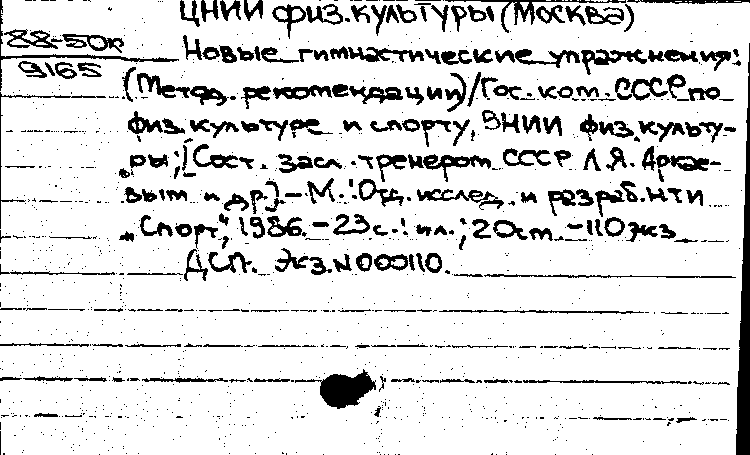 ЦНИИ физ.культуры (Москва)
88-50к
9165
Новые гимнастические упражнения:
(Метод. рекомендации)/Гос. ком. СССР по
физ. культуре и спорту, ВНИИ физ. культу-
ры; [Сост. засл. тренером СССР Л.Я. Аркае-
вым и др.]. - М.: Отд. исслед. и разраб. НТИ
"Спорт", 1986. - 23 с.: ил.; 20 см. - 110 экз
ДСП. Экз. N 000110.